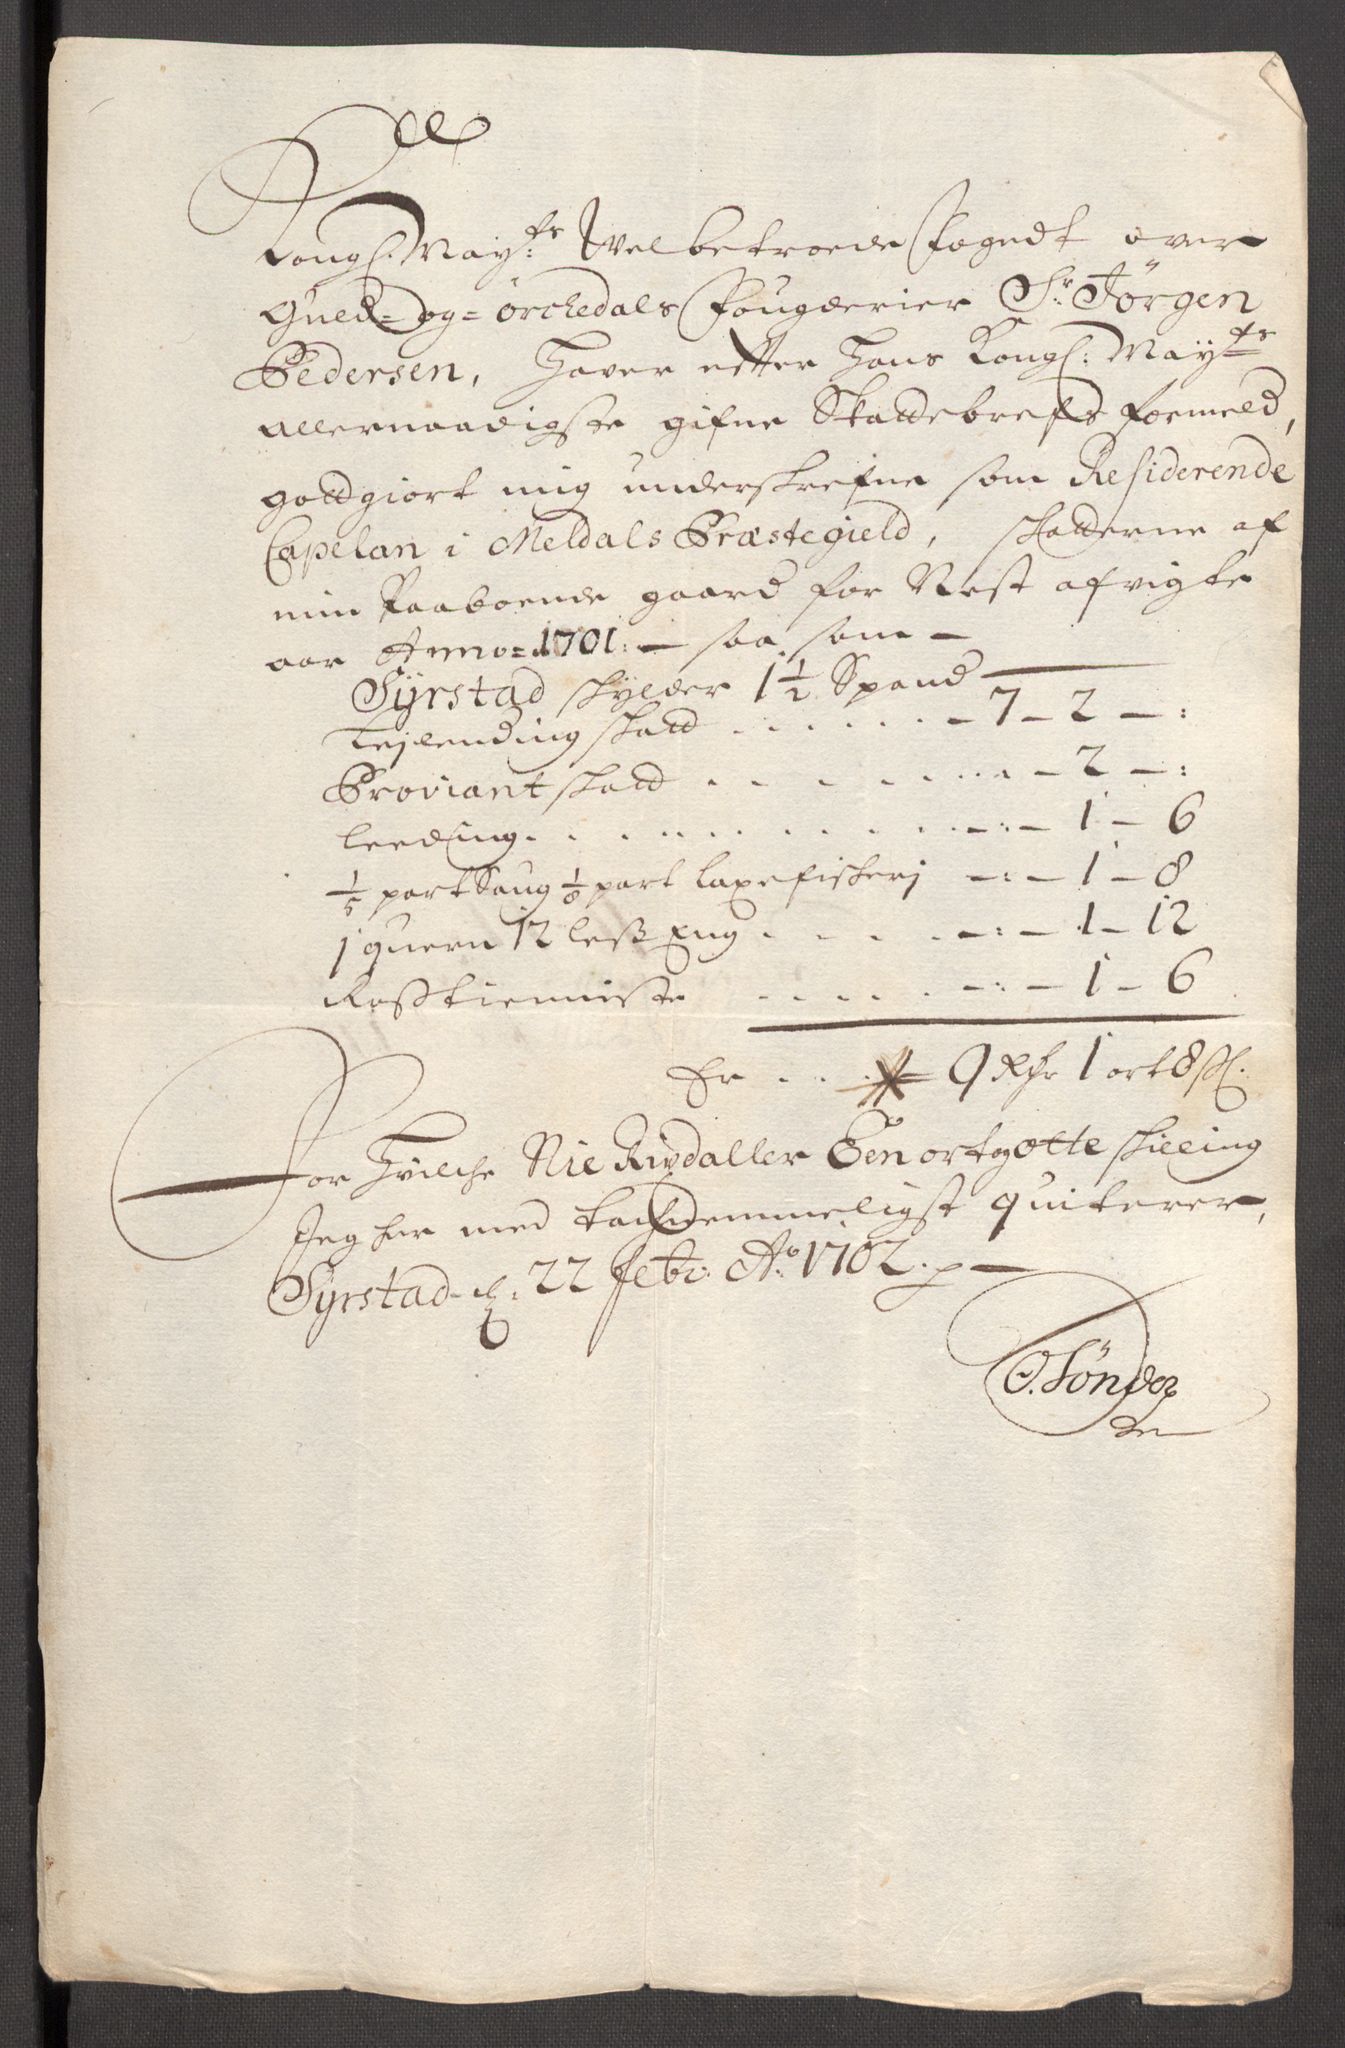 Kongl. May:ts Welbetroede Fogedt over
Guld- og- örchedals Fougderier Sr. Jörgen
Pedersen, Haver efter Hans Kongl: May:ts
allernaadigste gifne Skattebrefs formeld,
gottgiort mig underskrefne som Residerende
Capelan i Meldals Præstegield, skatterne af
min Paaboende gaard for Nest afvigte
aar Anno= 1701:— saa som—
Syrstad skylder 1 1/2 Spand
Lejlending skatt ...... – 7 – 2 – :
Proviant skatt ...... – 2 – :
Leeding ...... –:– 1 – 6
1/5 part Saug 1/8 part laxefiskerj –:– 1 – 8
1 quern 12 less Eng ..... –:– 1 – 12
Rosstienniste ..... –:– 1 – 6
Er ... 9 Rdr 1 ort 8 sk.
For Hvilche Nie Rixdaller Een ort og otte skilling
Jeg her med tachnemmeligst quiterer,
Syrstad d: 22 febr: Ao 1702. p—
O. Sönder